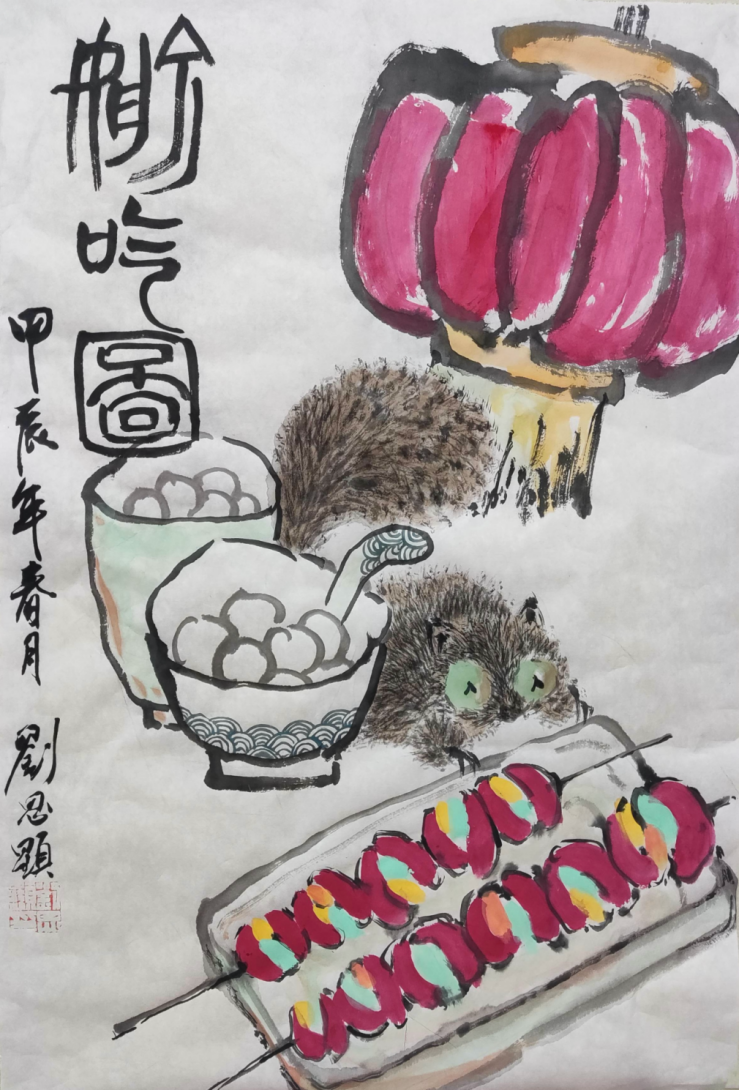 偷吃圖
甲辰年春月 劉思顯